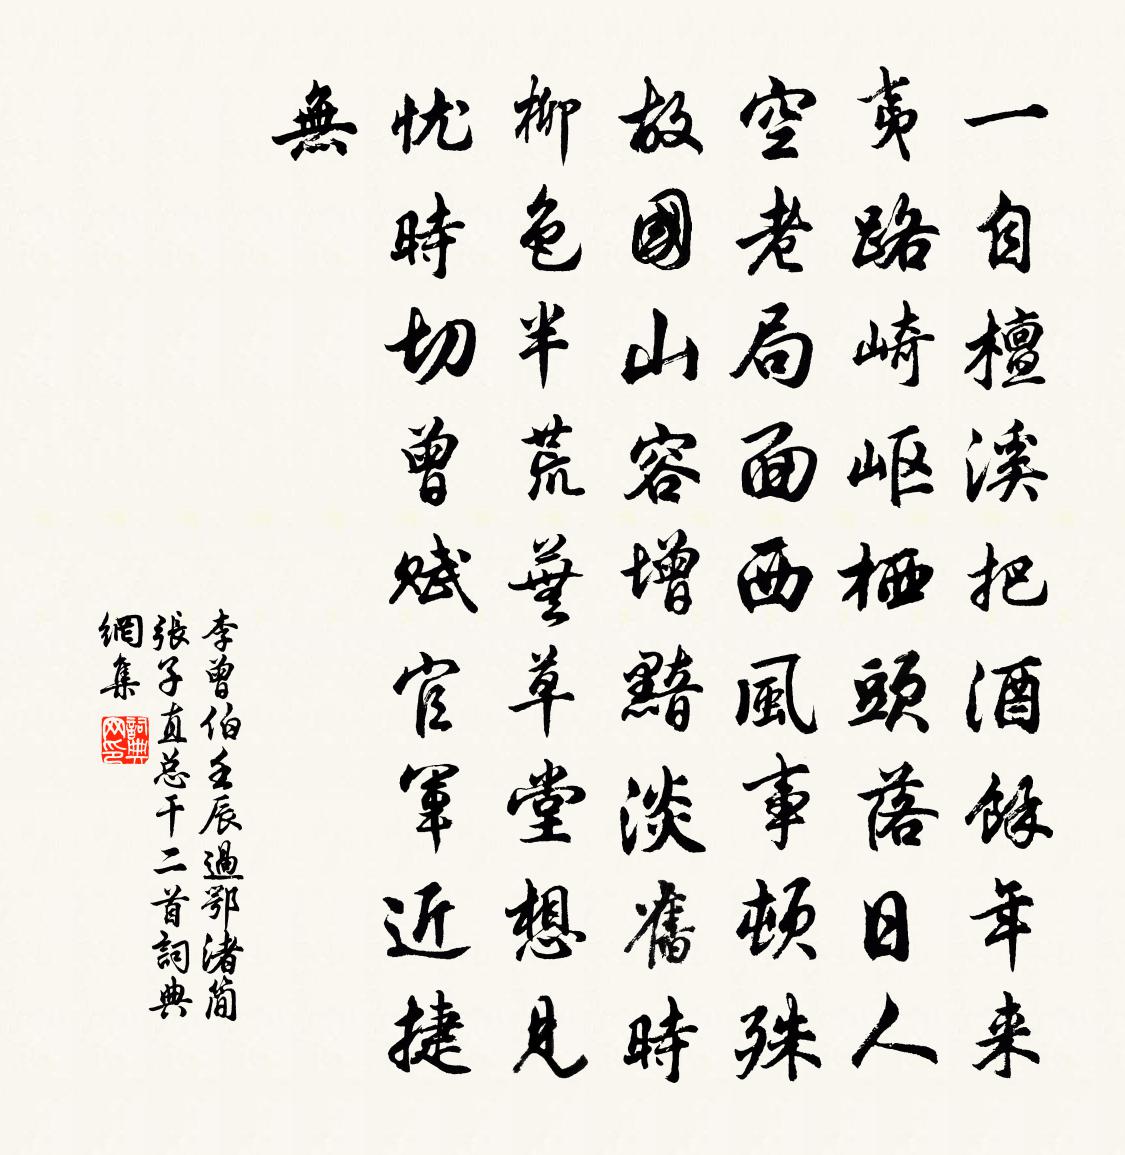 一自檀溪把酒餘年来
夷路崎岖栖頭落日人
空老局面西風事頓殊
故國山容增黯淡舊時
柳色半荒蕪草堂想見
忧時切曾赋官軍近捷
無
李曾伯壬辰過鄂渚简
張子直总干二首詞典
網集
詞典網印